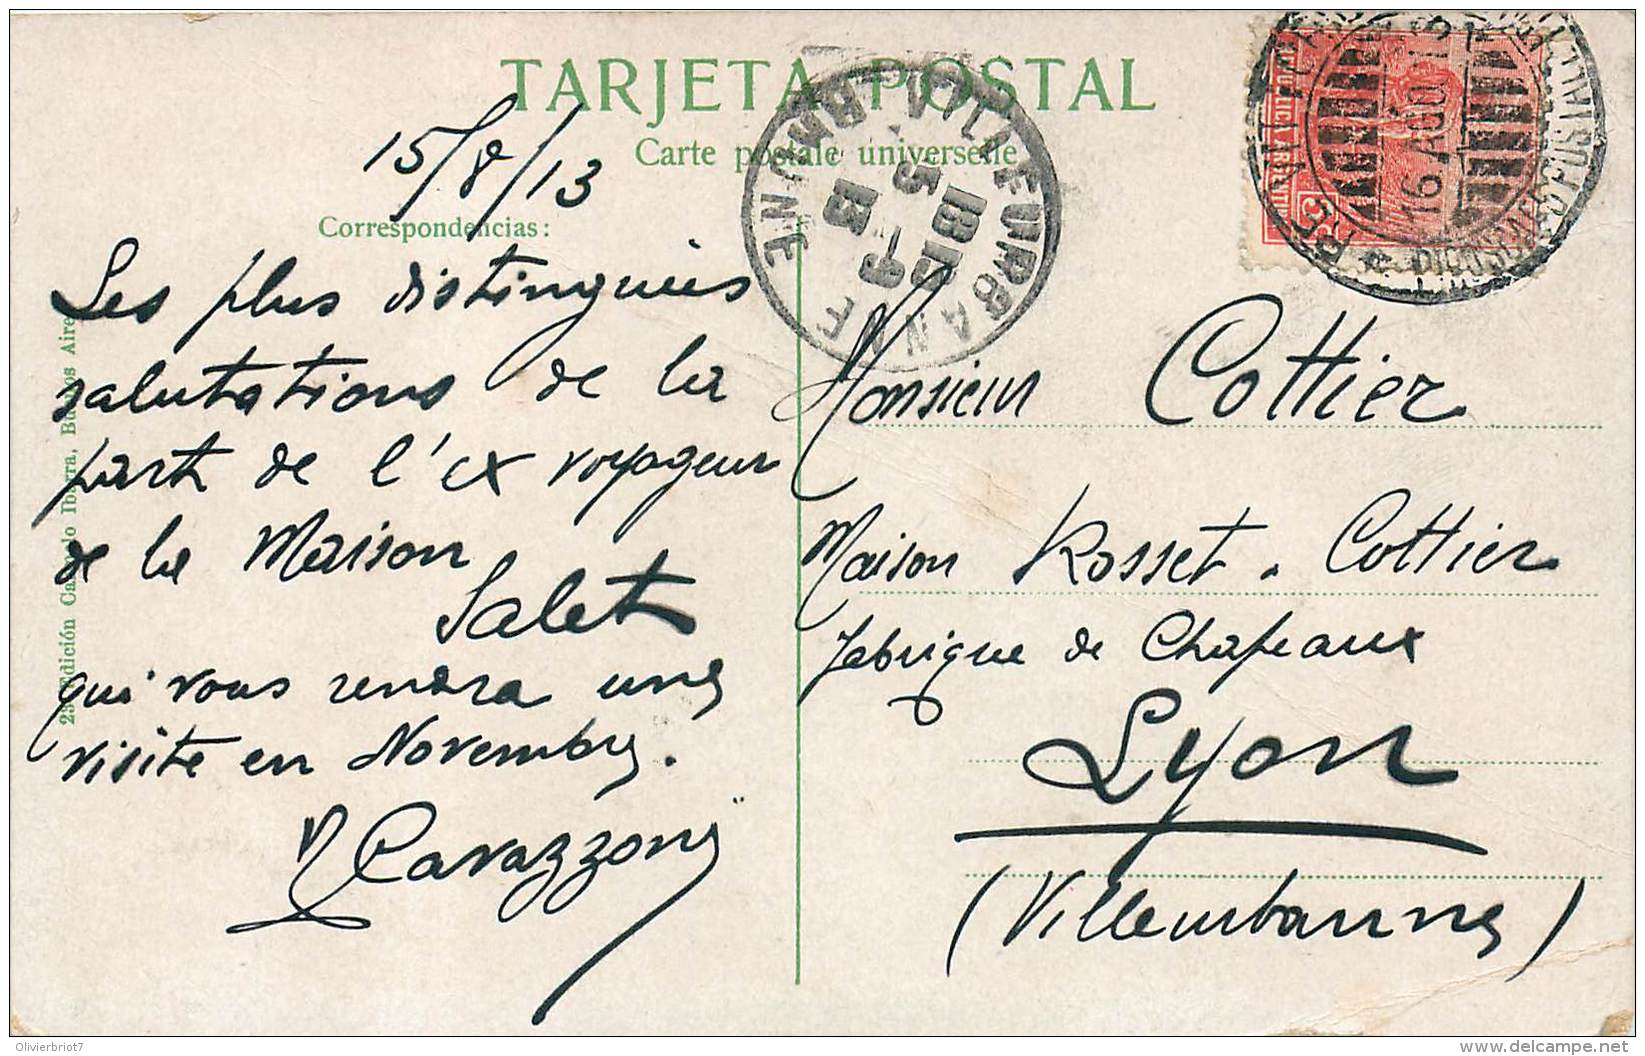 TARJETA POSTAL
Carte postale universelle
15/8/13
Correspondencias:
Les plus distinguées
salutations de la
part de l'ex voyageur
de la Maison
Salet
qui vous rendra une
visite en Novembre.
Cavazzoni
Monsieur Cottier
Maison Rosset. Cottier
Fabrique de Chapeaux
Lyon
(Villeurbanne)
VILLEURBANNE
18 15
5 - 9
13
REPUBLICA ARGENTINA
5
16 AGO 1913
Edición Ibarra, Buenos Aires
Olivierbriot7
www.delcampe.net